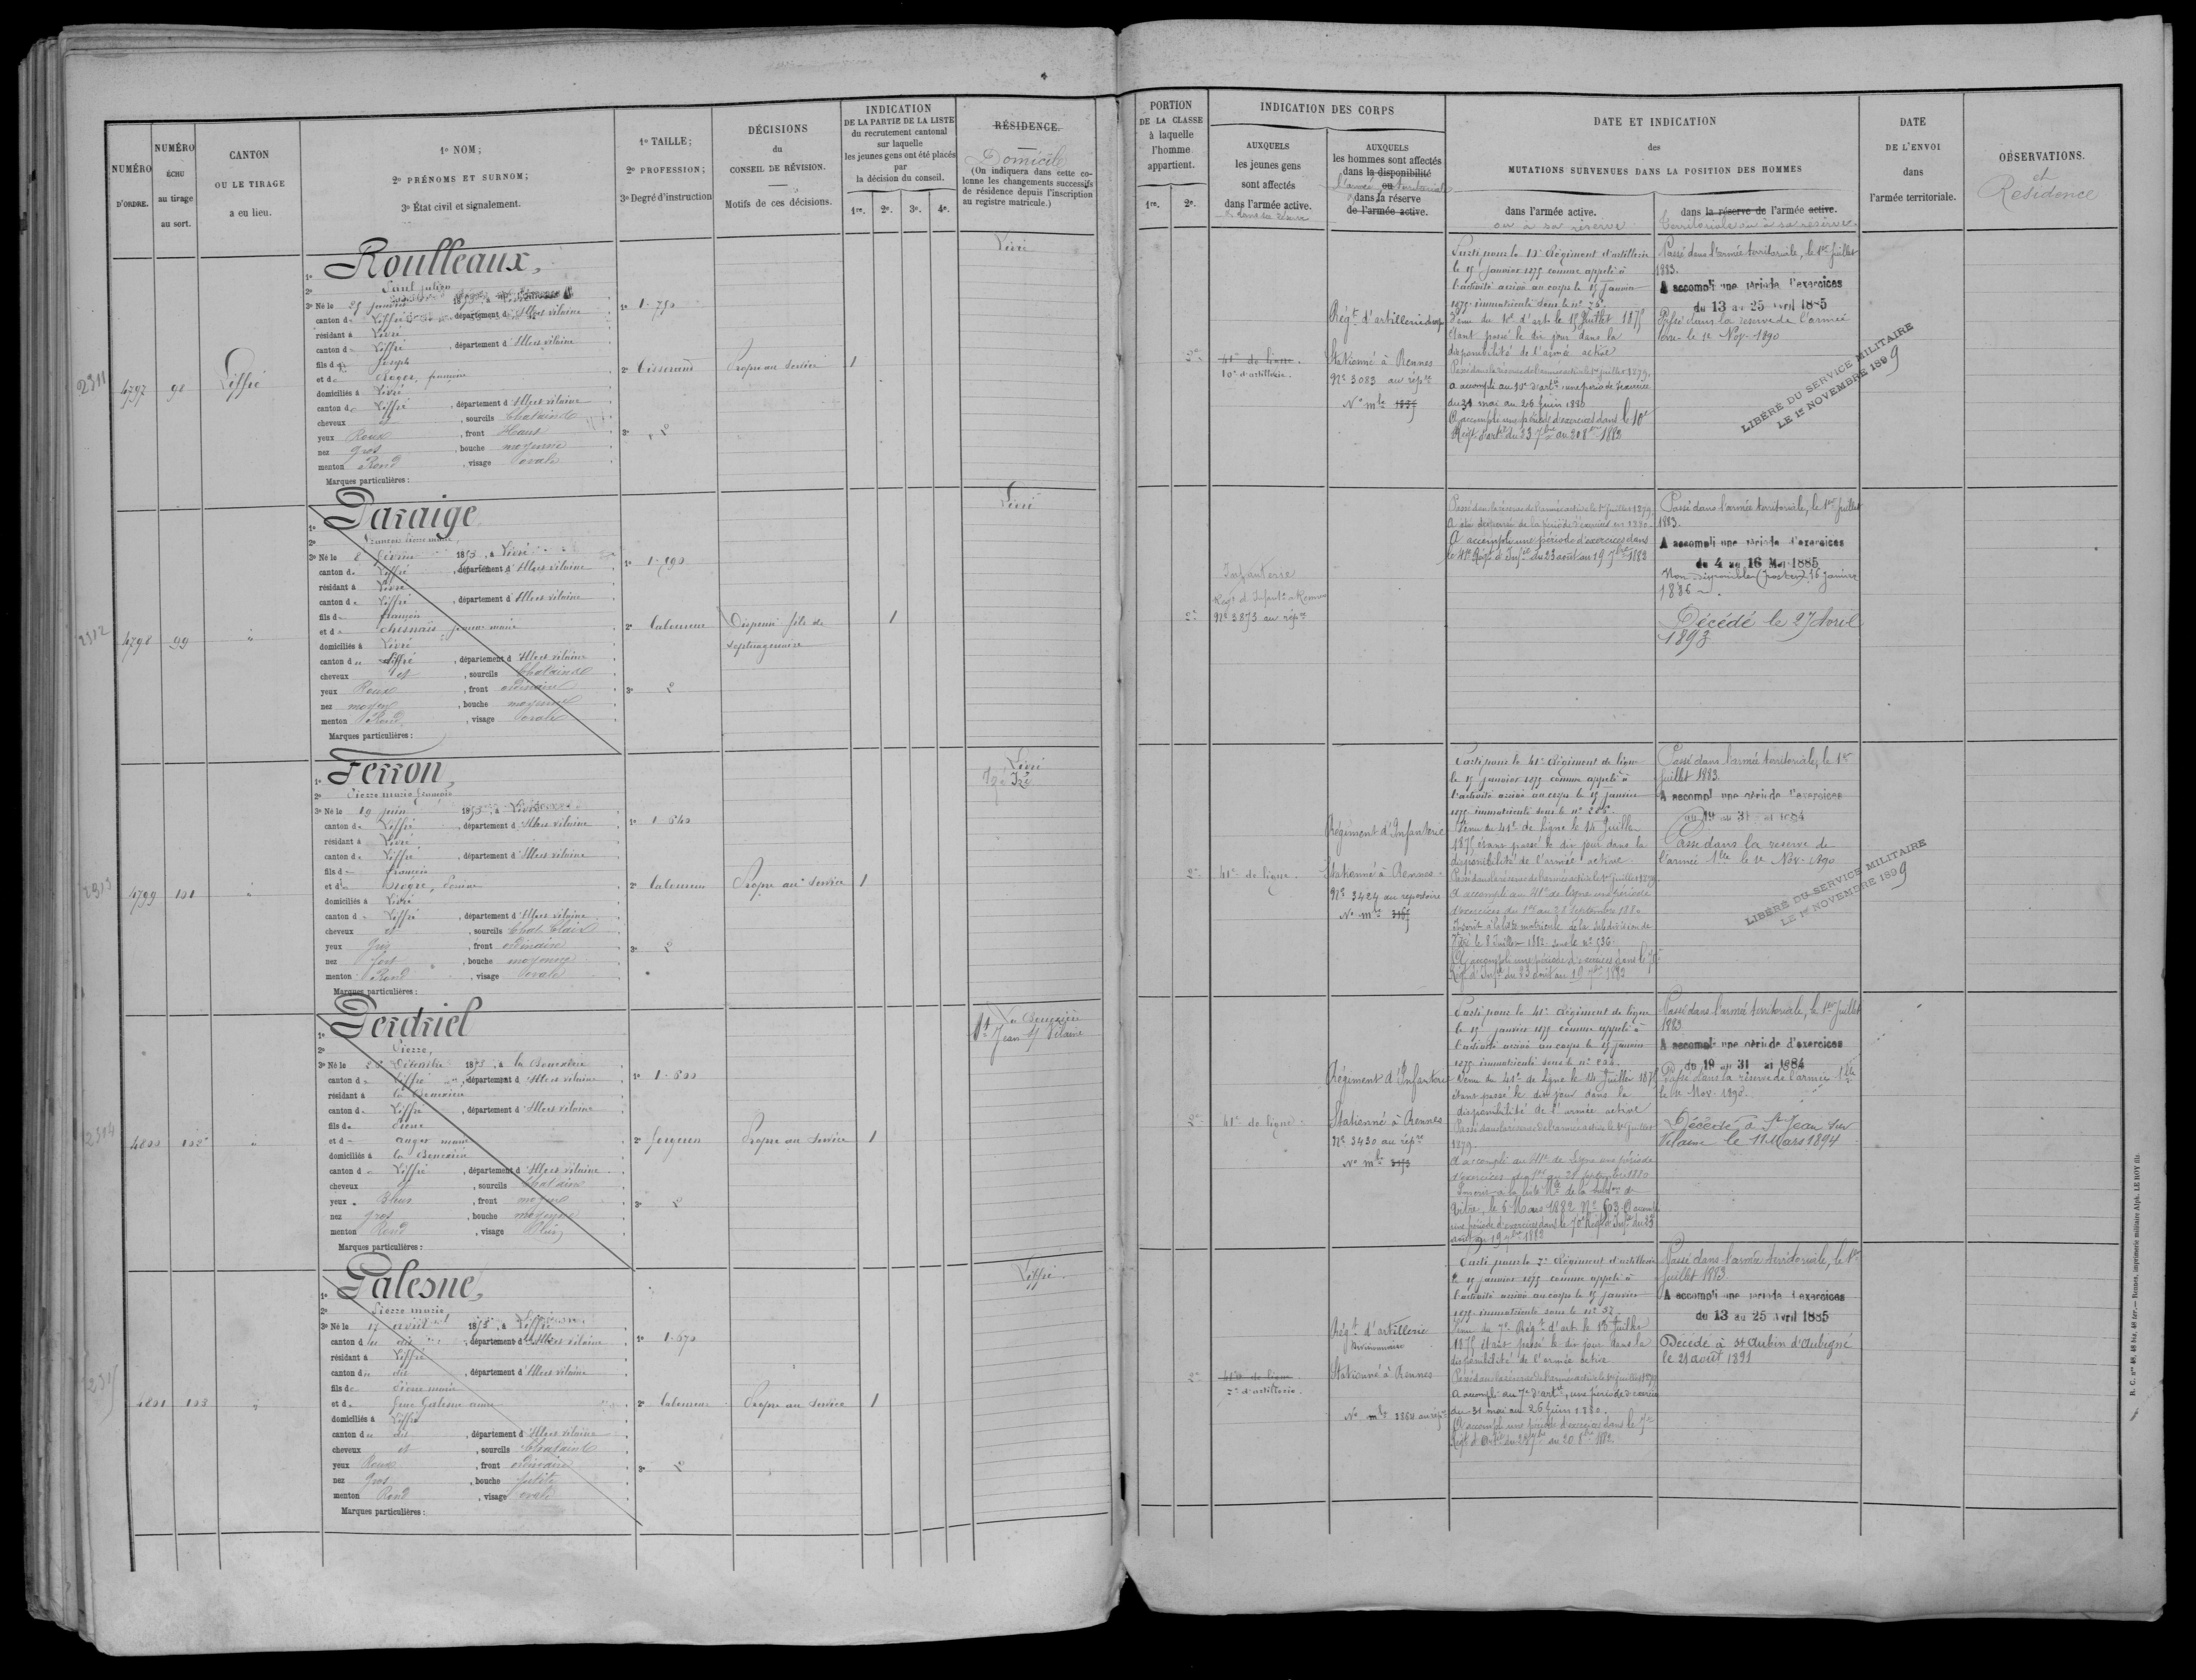 NUMÉRO D'ORDRE.
NUMÉRO ÉCHU au tirage au sort.
CANTON OU LE TIRAGE a eu lieu.
1º NOM;
2º PRÉNOMS ET SURNOM;
3º État civil et signalement.
1º TAILLE;
2º PROFESSION;
3º Degré d'instruction
DÉCISIONS du CONSEIL DE RÉVISION.
Motifs de ces décisions.
INDICATION
DE LA PARTIE DE LA LISTE
du recrutement cantonal
sur laquelle
les jeunes gens ont été placés
par
la décision du conseil.
1re. 2e. 3e. 4e.
RÉSIDENCE.
Domicile
(On indiquera dans cette colonne les changements successifs de résidence depuis l'inscription au registre matricule.)
PORTION
DE LA CLASSE
à laquelle
l'homme
appartient.
1re. 2e.
INDICATION DES CORPS
AUXQUELS
les jeunes gens
sont affectés
dans l'armée active.
AUXQUELS
les hommes sont affectés
dans la disponibilité
ou
dans la réserve
de l'armée active.
DATE ET INDICATION
des
MUTATIONS SURVENUES DANS LA POSITION DES HOMMES
dans l'armée active.
ou à sa réserve
dans la réserve de l'armée active.
territoriale ou à sa réserve
DATE
DE L'ENVOI
dans
l'armée territoriale.
OBSERVATIONS.
et
Résidence
2311
4797
98
Liffré
1º Roulleaux,
2º Paul Julien
3º Né le 25 janvier
canton de Liffré, département d'Ille et vilaine
résidant à Livré
canton de Liffré, département d'Ille et vilaine
fils de Joseph
et de Roger, françoise
domiciliés à Livré
canton de Liffré, département d'Ille et vilaine
cheveux et, sourcils Chatains
yeux Roux, front Haut
nez gros, bouche moyenne
menton Rond, visage ovale
Marques particulières:
1º 1.750
2º Tisserand
3º 2
Propre au service
1
Livré
2e
41e de ligne.
10e d'artillerie.
Régt d'artillerie
Stationné à Rennes
Nº 3083 au répre
Nº mle
Parti pour le 10e Régiment d'artillerie
le 15 janvier 1875 comme appelé à
l'activité arrivé au corps le 15 janvier
1875 immatriculé sous le nº
Venu du 10e d'art. le 15 Juillet 1875
étant passé le dit jour dans la
disponibilité de l'armée active
Passé dans la réserve de l'armée active le 1er juillet 1879.
A accompli au 10e d'artie une période d'exercices
du 31 mai au 26 Juin 1880
A accompli une période d'exercices dans le 10e
Régt d'artie du 23 7bre au 20 8bre 1882
Passé dans l'armée territoriale, le 1er Juillet
1883.
A accompli une période d'exercices
du 13 au 25 avril 1885
Passé dans la réserve de l'armée
terre le 1e Nov. 1890
LIBÉRÉ DU SERVICE MILITAIRE
LE 1er NOVEMBRE 1899
2312
4798
99
"
1º Paraige
2º François Pierre marie
3º Né le 8 février 1853, à Livré
canton de Liffré, département d'Ille et vilaine
résidant à Livré
canton de Liffré, département d'Ille et vilaine
fils de françois
et de chesnais jeanne marie
domiciliés à Livré
canton de Liffré, département d'Ille et vilaine
cheveux et, sourcils Chatains
yeux Roux, front ordinaire
nez moyen, bouche moyenne
menton Rond, visage ovale
Marques particulières:
1º 1.590
2º Laboureur
3º 2
Dispensé fils de
septuagénaire
1
Livré
2e
Infanterie
Régt d'Infantie à Rennes
Nº 3873 au répre
Passé dans la réserve de l'armée active le 1er Juillet 1879.
A été dispensé de la période d'exercices en 1880.
A accompli une période d'exercices dans
le 41e Régt d'Infie du 23 août au 19 7bre 1882
Passé dans l'armée territoriale, le 1er Juillet
1883.
A accompli une période d'exercices
du 4 au 16 Mai 1885
Non disponible (postes) 16 janvier
1886
Décédé le 27 Avril
1893
2313
4799
101
"
1º Ferron,
2º Pierre marie françois
3º Né le 19 juin 1853, à Livré
canton de Liffré, département d'Ille et vilaine
résidant à Livré
canton de Liffré, département d'Ille et vilaine
fils de françois
domiciliés à Livré
canton de Liffré, département d'Ille et vilaine
cheveux et, sourcils Chat. Clairs
yeux Gris, front ordinaire
nez fort, bouche moyenne
menton Rond, visage ovale
Marques particulières:
1º 1.640
2º Laboureur
3º 2
Propre au service
1
Livré
Izé
2e
41e de ligne.
Régiment d'Infanterie
Stationné à Rennes
Nº 3424 au répertoire
Nº mle
Parti pour le 41e Régiment de ligne
le 15 janvier 1875 comme appelé à
l'activité arrivé au corps le 15 janvier
1875 immatriculé sous le nº
Venu du 41e de Ligne le 14 Juillet
1875 étant passé le dit jour dans la
disponibilité de l'armée active
Passé dans la réserve de l'armée active le 1er Juillet 1879.
A accompli au 41e de ligne une période
d'exercices du 1er au 28 Septembre 1880
Inscrit à la liste matricule de la subdivision de
Vitré le 8 Juillet 1882 sous le nº 536
A accompli une période d'exercices dans le 70e
Régt d'Infie du 23 août au 19 7bre 1882
Passé dans l'armée territoriale, le 1er
Juillet 1883.
A accompli une période d'exercices
du 19 au 31 mai 1884
Passé dans la réserve de
l'armée tle le 1e Nov. 1890
LIBÉRÉ DU SERVICE MILITAIRE
LE 1er NOVEMBRE 1899
2314
4800
102
"
1º Perdriel
2º Pierre,
canton de Liffré, département d'Ille et vilaine
canton de Liffré, département d'Ille et vilaine
fils de Pierre
et de Auger marie
canton de Liffré, département d'Ille et vilaine
cheveux et, sourcils Chatains
yeux Bleus, front moyen
nez gros, bouche moyenne
menton Rond, visage Plein
Marques particulières:
1º 1.600
2º forgeron
3º 2
Propre au service
1
St Jean s/ Vilaine
2e
41e de ligne
Régiment d'Infanterie
Stationné à Rennes
Nº 3430 au répre
Nº mle
Parti pour le 41e Régiment de ligne
le 15 janvier 1875 comme appelé à
l'activité arrivé au corps le 15 janvier
1875 immatriculé sous le nº
Venu du 41e de Ligne le 14 Juillet 1875
étant passé le dit jour dans la
disponibilité de l'armée active
Passé dans la réserve de l'armée active le 1er Juillet
1879.
A accompli au 41e de Ligne une période
d'exercices du 1er au 28 septembre 1880
Inscrit à la liste Mle de la subdon de
Vitré, le 6 Mars 1882 Nº 503 A accompli
une période d'exercices dans le 70e Régt d'Infie du 23
août au 19 7bre 1882
Passé dans l'armée territoriale, le 1er Juillet
1883
A accompli une période d'exercices
du 19 au 31 mai 1884
Passé dans la réserve de l'armée tle
le 1e Nov. 1890.
Décédé à St Jean sur
Vilaine le 11 Mars 1894
4801
103
"
1º Galesne,
2º Pierre marie
3º Né le 17 avril 1853, à Liffré
canton du dit, département d'Ille et vilaine
résidant à Liffré
canton du dit, département d'Ille et vilaine
fils de Pierre marie
domiciliés à Liffré
canton du dit, département d'Ille et vilaine
cheveux et, sourcils Chatains
yeux Roux, front ordinaire
nez Gros, bouche petite
menton Rond, visage ovale
Marques particulières:
1º 1.670
2º Laboureur
3º 2
Propre au service
1
Liffré
2e
41e de ligne
7e d'artillerie.
Régt d'artillerie
Divisionnaire
Stationné à Rennes
Nº mle 3864 au répre
Parti pour le 7e Régiment d'artillerie
le 15 janvier 1875 comme appelé à
l'activité arrivé au corps le 15 janvier
1875 immatriculé sous le nº 37
Venu du 7e Régt d'art. le 15 Juillet
1875 étant passé le dit jour dans la
disponibilité de l'armée active
Passé dans la réserve de l'armée active le 1er juillet 1879
A accompli au 7e d'artie, une période d'exercices
du 31 mai au 26 Juin 1880.
A accompli une période d'exercices dans le 7e
Régt d'Artie du 23 7bre au 20 8bre 1882
Passé dans l'armée territoriale, le 1er
Juillet 1883
A accompli une période d'exercices
du 13 au 25 avril 1885
Décédé à St Aubin d'Aubigné
le 21 août 1891
R. C. nos 48, 48 bis, 48 ter. — Rennes, imprimerie militaire Alph. LE ROY fils.